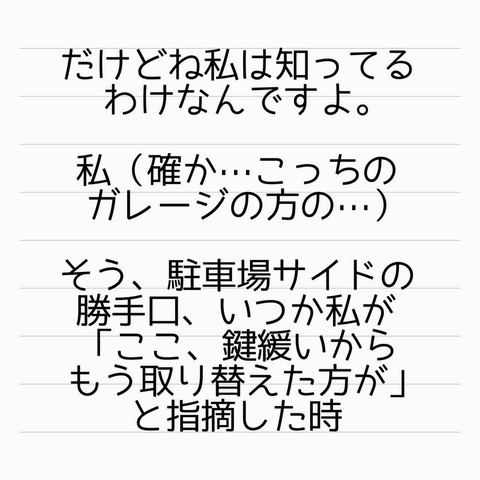 だけどね私は知ってる
わけなんですよ。
私（確か…こっちの
ガレージの方の…）
そう、駐車場サイドの
勝手口、いつか私が
「ここ、鍵緩いから
もう取り替えた方が」
と指摘した時